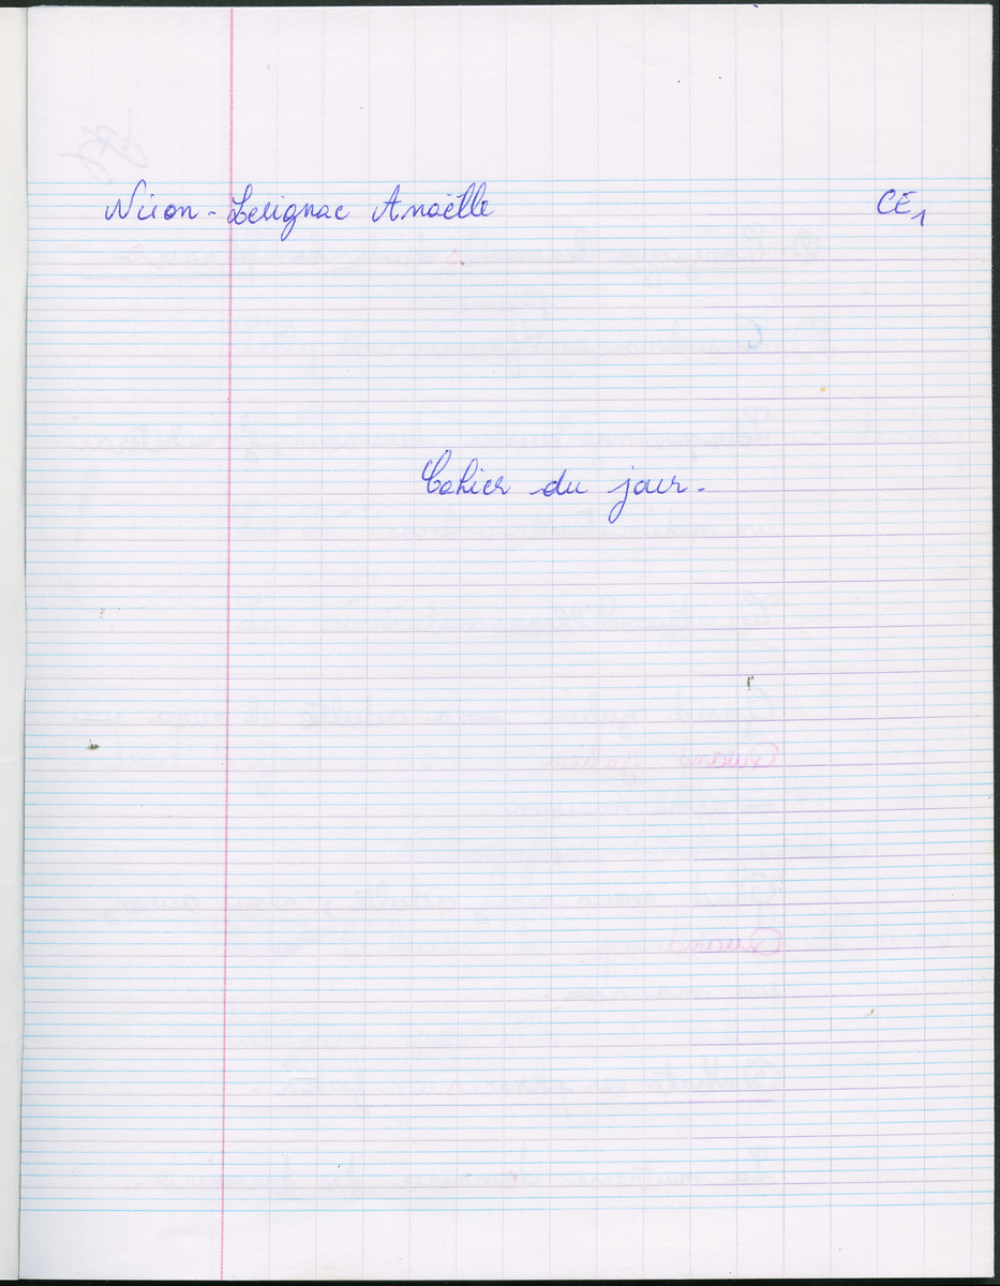 Nison-Lesignac Anaëlle CE1
Cahier du jour.